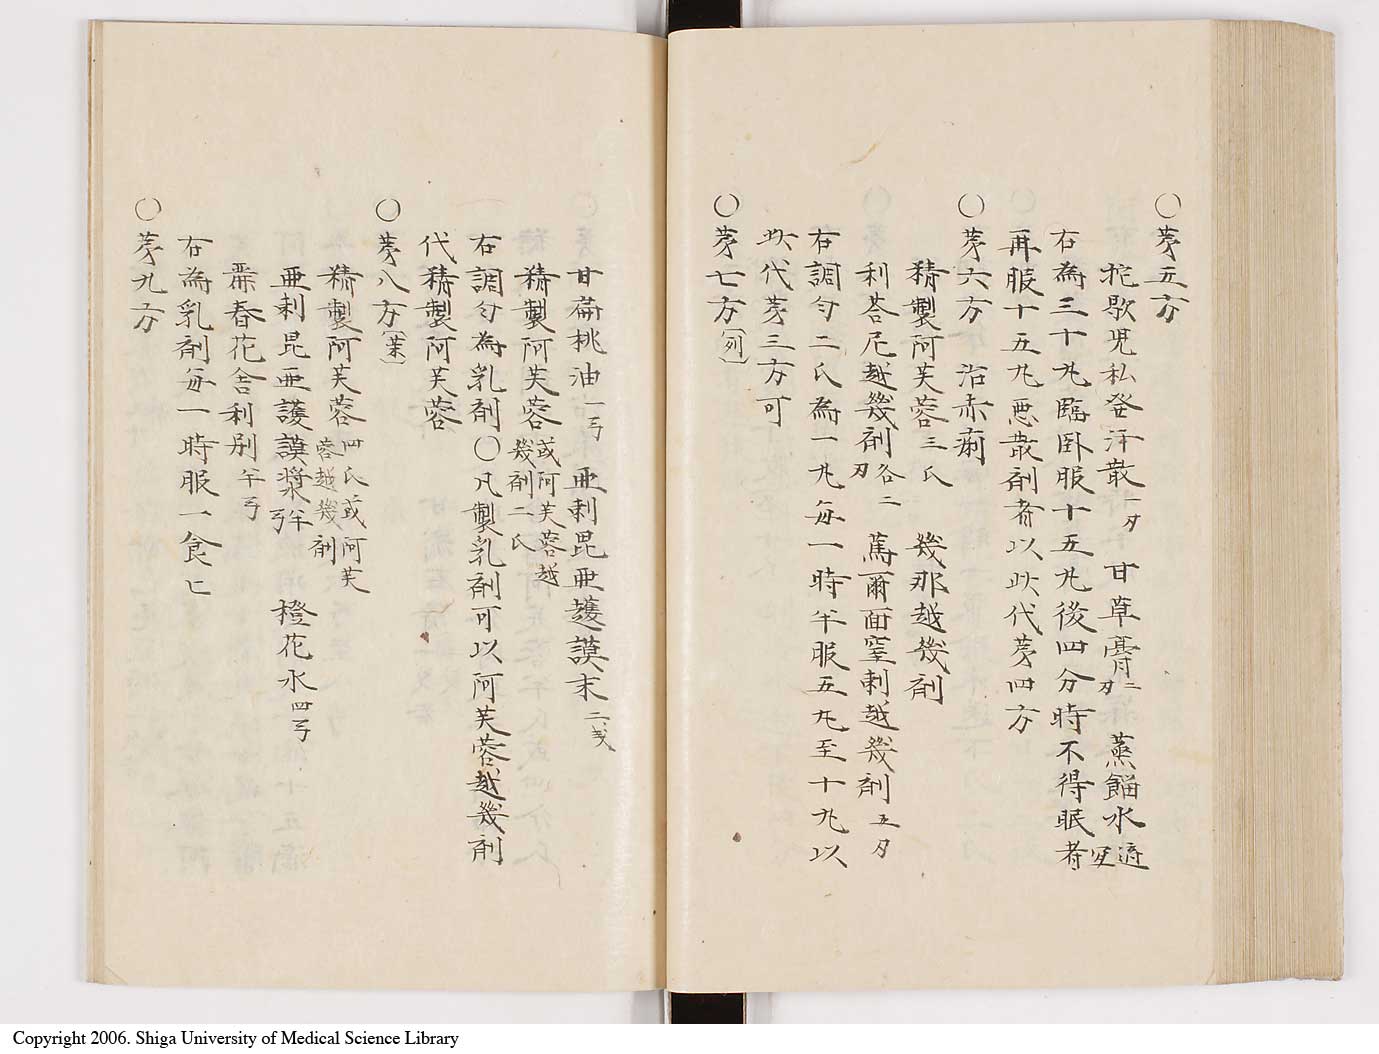 〇茅五方
抱歇児私發汗散一刃 甘草膏二刃 蒸餾水適宜
右為三十丸臨卧服十五丸後四分時不得眠者
再服十五丸悪散剤者以此代茅四方
〇茅六方 治赤痢
精製阿芙蓉三氏 幾那越幾剤
利荅尼越幾剤各二刃 薦爾面窒剌越幾剤五刃
右調匀二氏為一丸毎一時半服五丸至十丸以
此代茅三方可
〇茅七方〔列〕
甘扁桃油一丂 亜剌毘亜護謨末二戔
精製阿芙蓉或阿芙蓉越幾剤二氏
右調匀為乳剤〇凡製乳剤可以阿芙蓉越幾剤
代精製阿芙蓉
〇茅八方〔葉〕
精製阿芙蓉四氏或阿芙蓉越幾剤
亜剌毘亜護謨漿半丂 橙花水四丂
罌春花舎利別半丂
右為乳剤毎一時服一食匕
〇茅九方
Copyright 2006. Shiga University of Medical Science Library